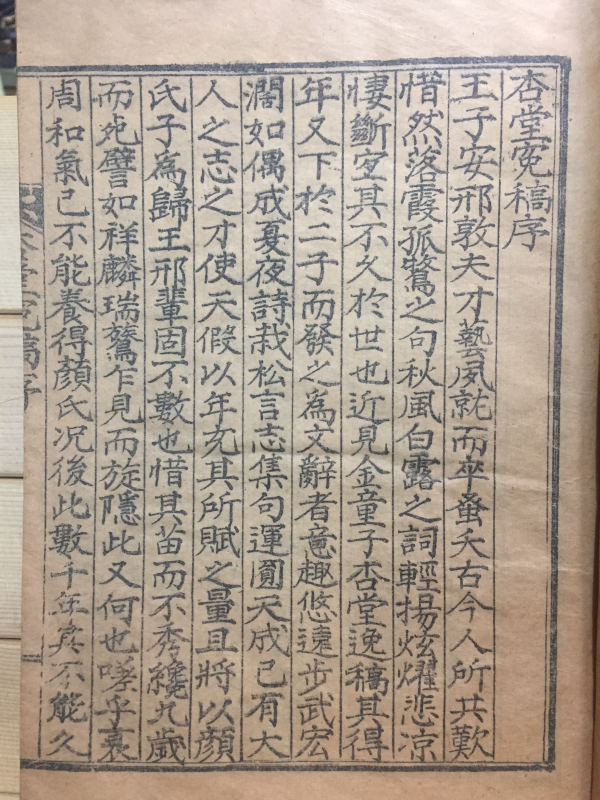 杏堂寃稿序
王子安邢敦夫才藝夙就而卒蚤夭古今人所共歎
惜然落霞孤鶩之句秋風白露之詞輕揚炫燿悲凉
悽斷宜其不久於世也近見金童子杏堂逸稿其得
年又下於二子而發之為文辭者意趣悠遠步武宏
濶如偶成夏夜詩栽松言志集句運圎天成已有大
人之志之才使天假以年充其所賦之量且將以顔
氏子為歸王邢輩固不數也惜其苗而不秀纔九歲
而死譬如祥麟瑞鸑乍見而旋隱此又何也嗟乎衰
周和氣已不能養得顔氏况後此數千年眞不能久